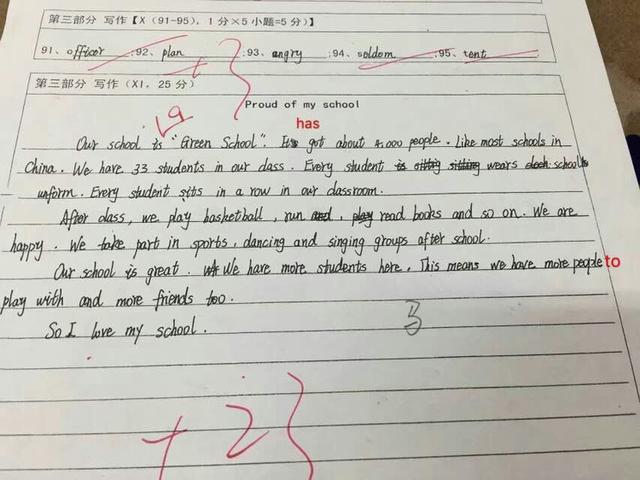 第三部分 写作【X（91-95），1分×5小题=5分）】
91、officer ;92、plan ;93、angry 94、seldom ;95、tent
第三部分 写作（XI，25分）
Proud of my school
19
has
Our school is "Green School". It's got about 4,000 people. Like most schools in
China. We have 33 students in our class. Every student wears school's
unform. Every student sits in a row in our classroom.
After class, we play basketball, run, read books and so on. We are
happy. We take part in sports, dancing and singing groups after school.
Our school is great. We have more students here. This means we have more people to
play with and more friends too.
So I love my school.
3
+2